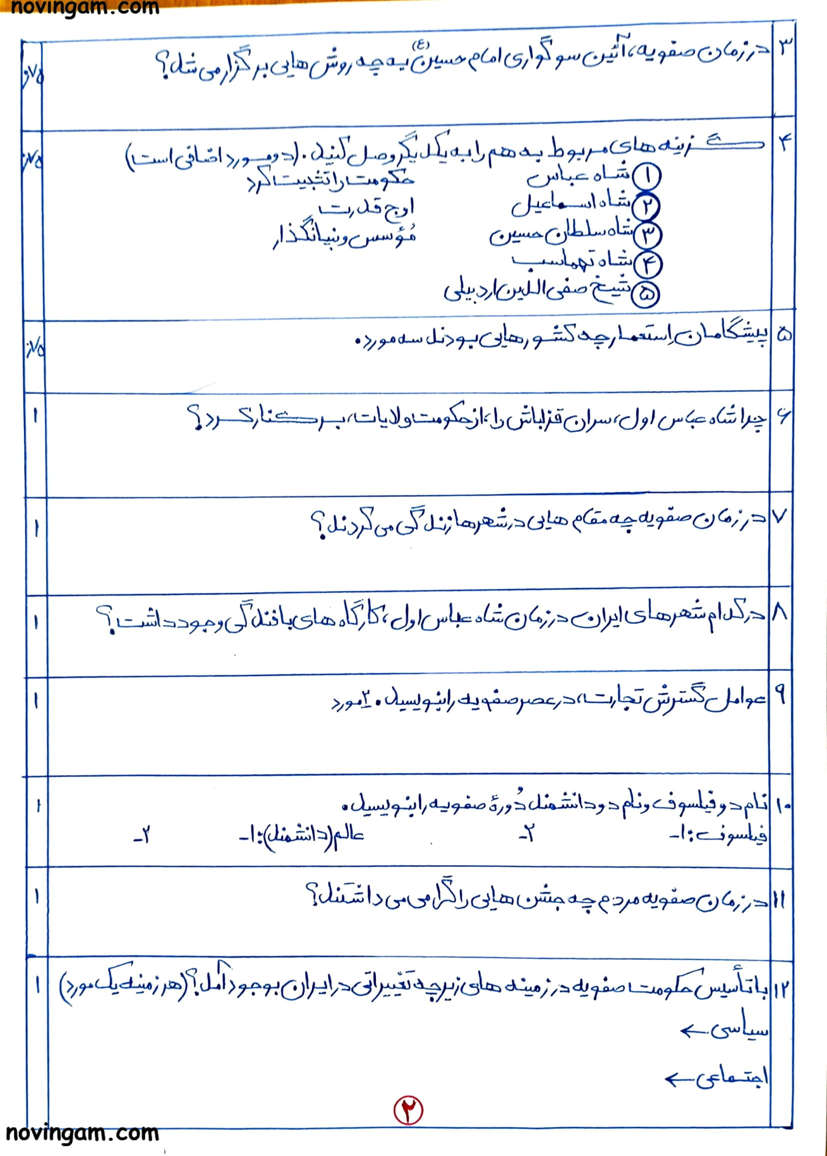 novingam.com
۳ در زمان صفویه، آئین سوگواری امام حسین (ع) به چه روش هایی برگزار می شد؟ ۰/۷۵
۴ گزینه های مربوط به هم را به یکدیگر وصل کنید. (دو مورد اضافی است) ۰/۷۵
۱ شاه عباس حکومت را تثبیت کرد
۲ شاه اسماعیل اوج قدرت
۳ شاه سلطان حسین مؤسس و بنیانگذار
۴ شاه تهماسب
۵ شیخ صفی الدین اردبیلی
۵ پیشگامان استعمار چه کشورهایی بودند سه مورد. ۰/۷۵
۶ چرا شاه عباس اول، سران قزلباش را، از حکومت ولایات، برکنار کرد؟ ۱
۷ در زمان صفویه چه مقام هایی در شهرها زندگی می کردند؟ ۱
۸ در کدام شهرهای ایران در زمان شاه عباس اول، کارگاه های بافندگی وجود داشت؟ ۱
۹ عوامل گسترش تجارت، در عصر صفویه را بنویسید. ۲ مورد ۱
۱۰ نام دو فیلسوف و نام دو دانشمند دُورهٔ صفویه را بنویسید. ۱
فیلسوف: ۱- ۲- عالم (دانشمند): ۱- ۲-
۱۱ در زمان صفویه مردم چه جشن هایی را گرامی می داشتند؟ ۱
۱۲ با تأسیس حکومت صفویه در زمینه های زیر چه تغییراتی در ایران بوجود آمد؟ (هر زمینه یک مورد) ۱
سیاسی ←
اجتماعی ←
۲
novingam.com